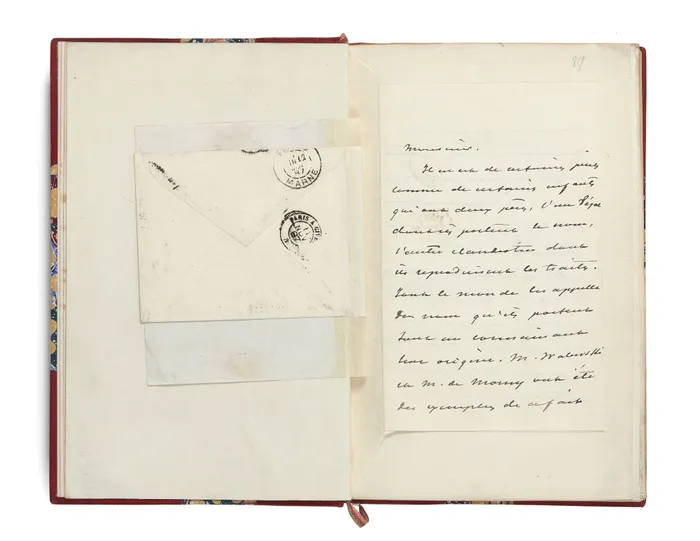 Monsieur.
Il en est de certaines pièces
comme de certains enfants
qui ont deux pères, l'un légal
dont ils portent le nom,
l'autre clandestin dont
ils reproduisent les traits.
Tout le monde les appelle
du nom qu'ils portent
tout en connaissant
leur origine. M. Walewski
et M. de Morny ont été
des exemples de ce fait
MARNE
PARIS A